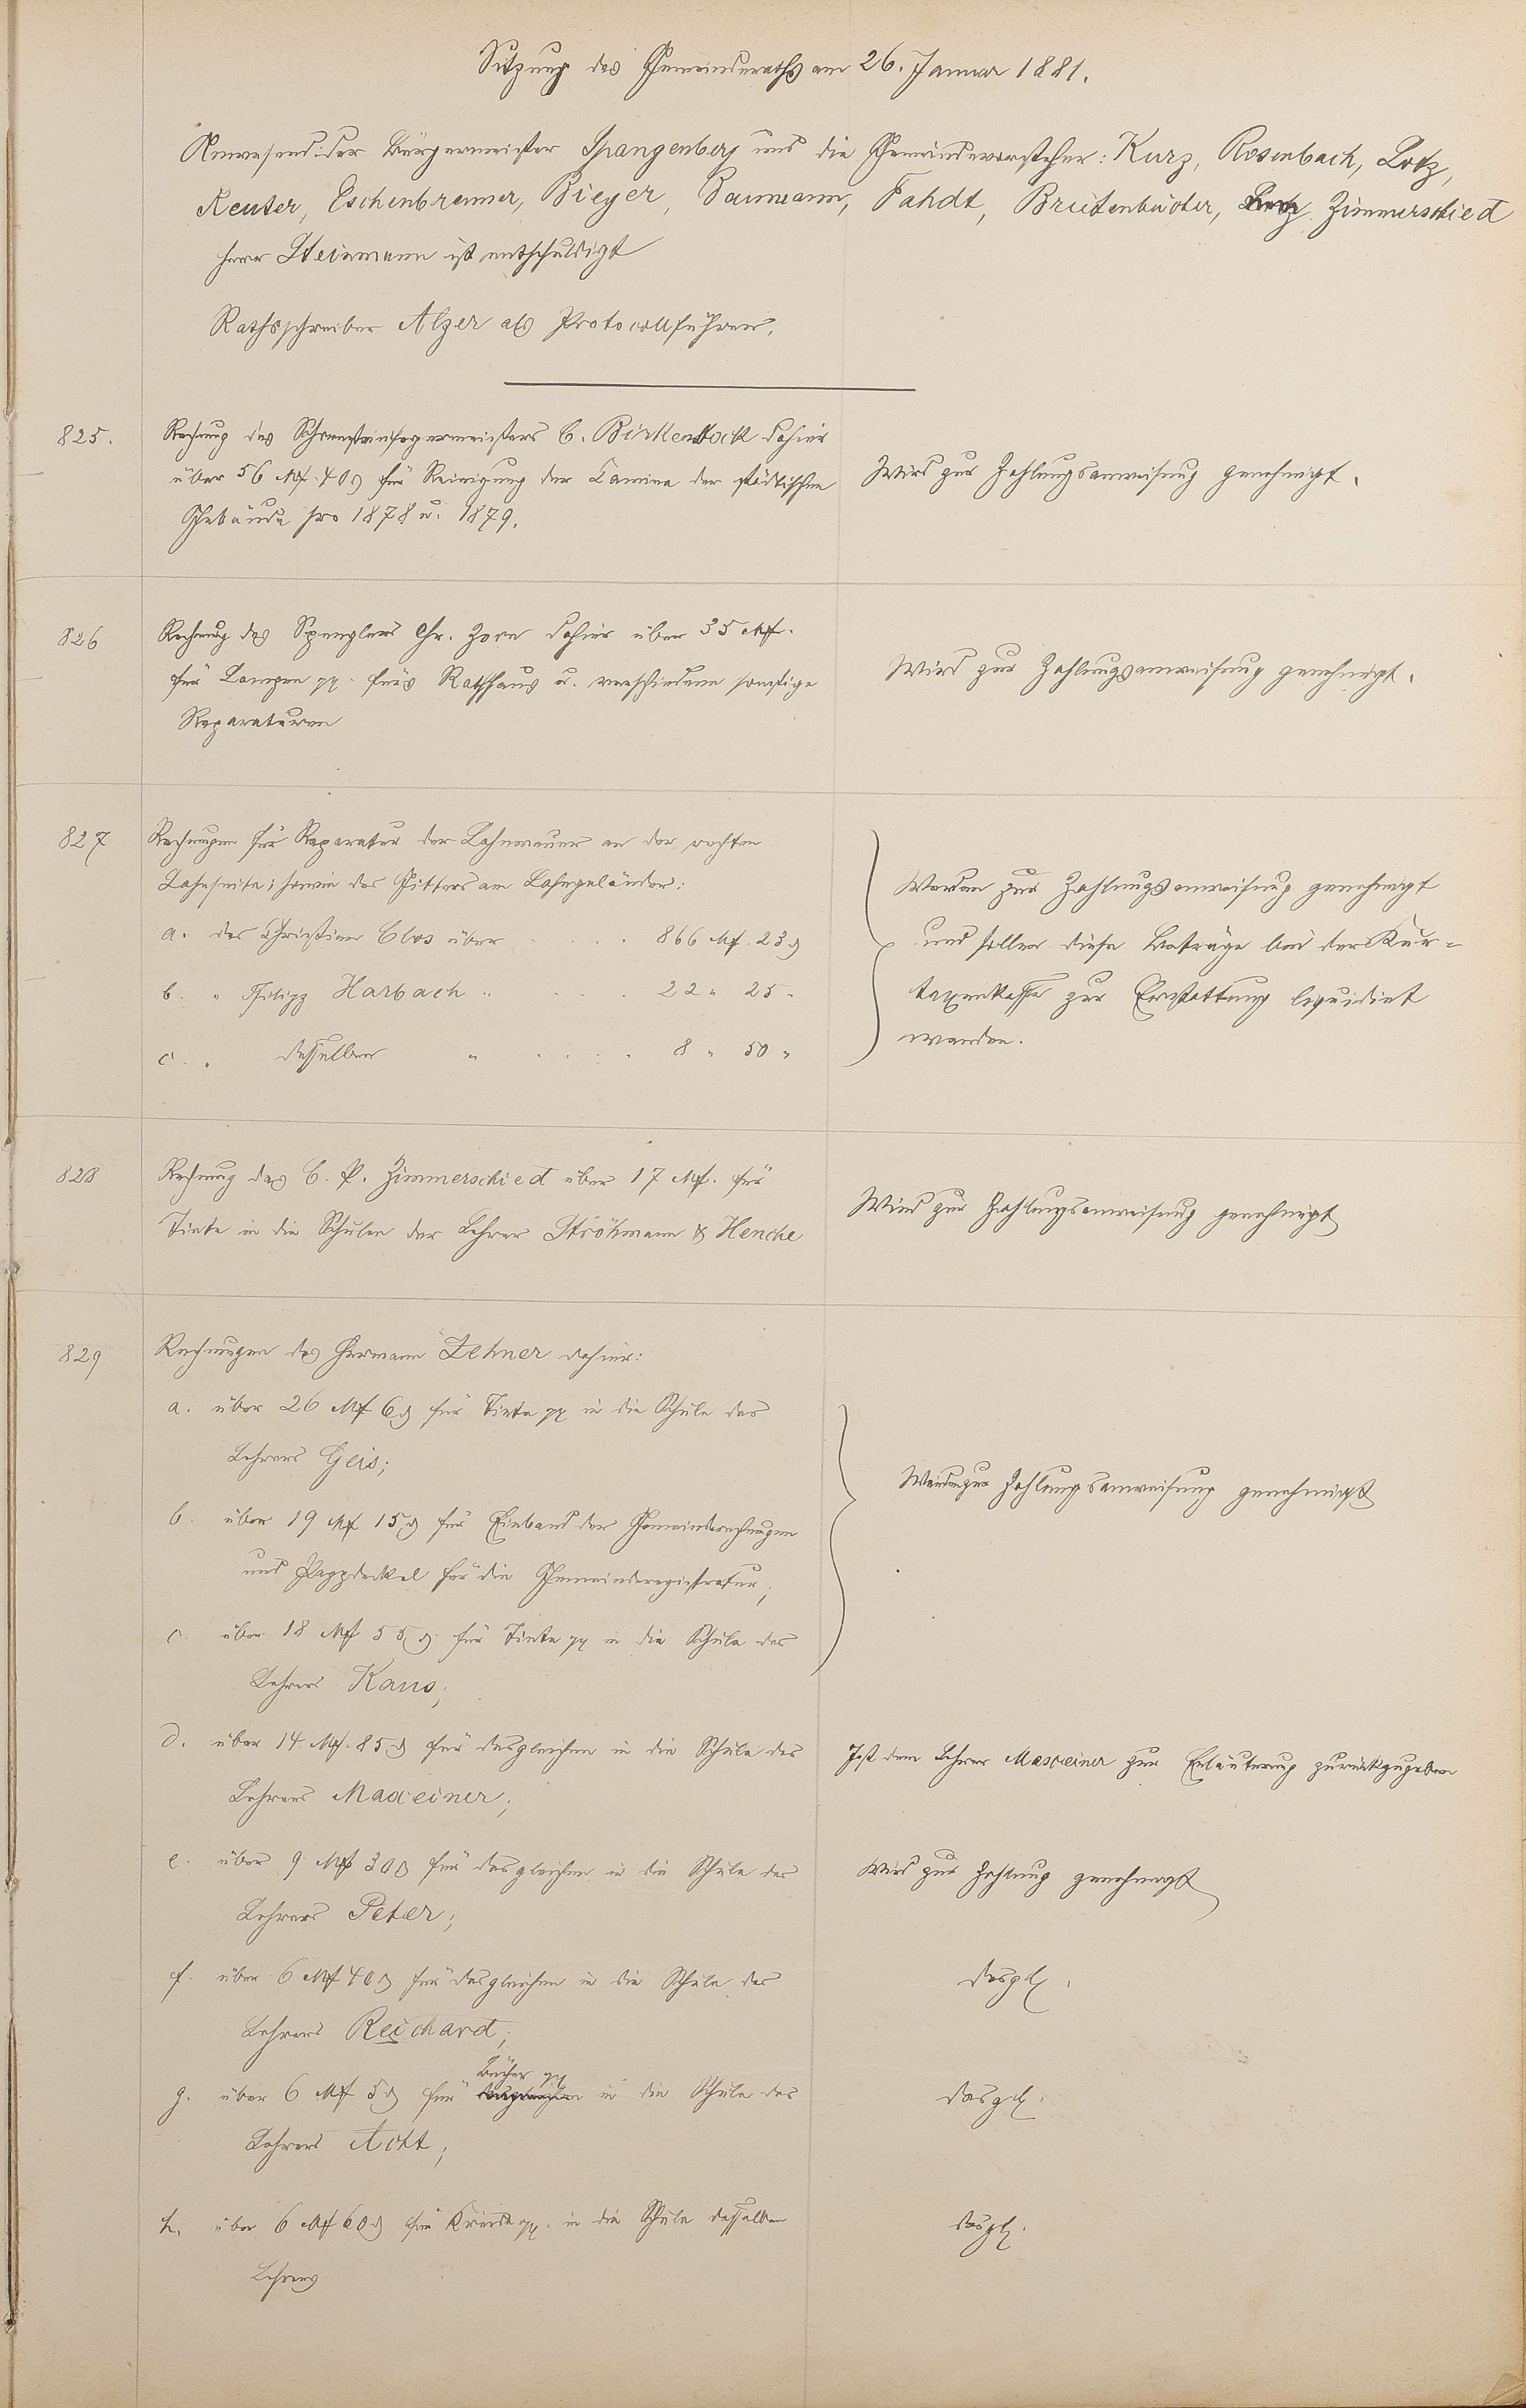 Sitzung des Gemeinderaths am 26. Januar 1881.
Anwesend: der Bürgermeister Spangenberg und die Gemeindevorsteher: Kurz, Rosenbach, Lotz,
Reuter, Eschenbrenner, Bieger, Baumann, Fahdt, Breitenbücher, Zimmerschied
Herr Steinmann ist entschuldigt
Rathsschreiber Alzer als Protocollführer.
825.
Rechnung des Schornsteinfegermeisters C. Birkenstock dahier
über 56 Mk. 40 ₰ für Reinigung der Camine der städtischen
Gebäude pro 1878 u. 1879.
Wird zur Zahlungsanweisung genehmigt.
826
Rechnung des Spenglers Chr. Zorn dahier über 35 Mk.
für Lampen pp. fürs Rathhaus u. verschiedene sonstige
Reparaturen
Wird zur Zahlungsanweisung genehmigt.
827
Rechnungen für Reparatur der Lahnmauer an der rechten
Lahnseite; sowie des Gitters am Lahngeländer:
a. des Christian Clos über . . . . 866 Mk. 23 ₰
b. " Philipp Harbach " . . . 22 " 25 "
c. " desselben " . . . . 8 " 50 "
Werden zur Zahlungsanweisung genehmigt
und sollen diese Beträge bei der Kur-
taxenkasse zur Erstattung liquidirt
werden.
828
Rechnung des C. P. Zimmerschied über 17 Mk. für
Tinte in die Schulen der Lehrer Ströhmann & Henche
Wird zur Zahlungsanweisung genehmigt
829
Rechnungen des Hermann Zehner dahier:
a. über 26 Mk 6 ₰ für Tinte pp in die Schule des
Lehrers Geis;
b. über 19 Mk 15 ₰ für Einband der Gemeinderechnungen
und Pappdeckel für die Gemeinderegistratur;
c. über 18 Mk 55 ₰ für Tinte pp in die Schule des
Lehrers Kaus;
Werden zur Zahlungsanweisung genehmigt
d. über 14 Mk. 85 ₰ für desgleichen in die Schule des
Lehrers Maxeiner;
Ist dem Lehrer Maxeiner zur Erläuterung zurückzugeben
e. über 9 Mk 30 ₰ für desgleichen in die Schule des
Lehrers Peter;
Wird zur Zahlung genehmigt
f. über 6 Mk 40 ₰ für desgleichen in die Schule des
Lehrers Reichard;
desgl.
g. über 6 Mk 5 ₰ für desgleichen Bücher pp in die Schule des
Lehrers Acht;
desgl.
h. über 6 Mk 60 ₰ für Kreide pp. in die Schule desselben
Lehrers
desgl.